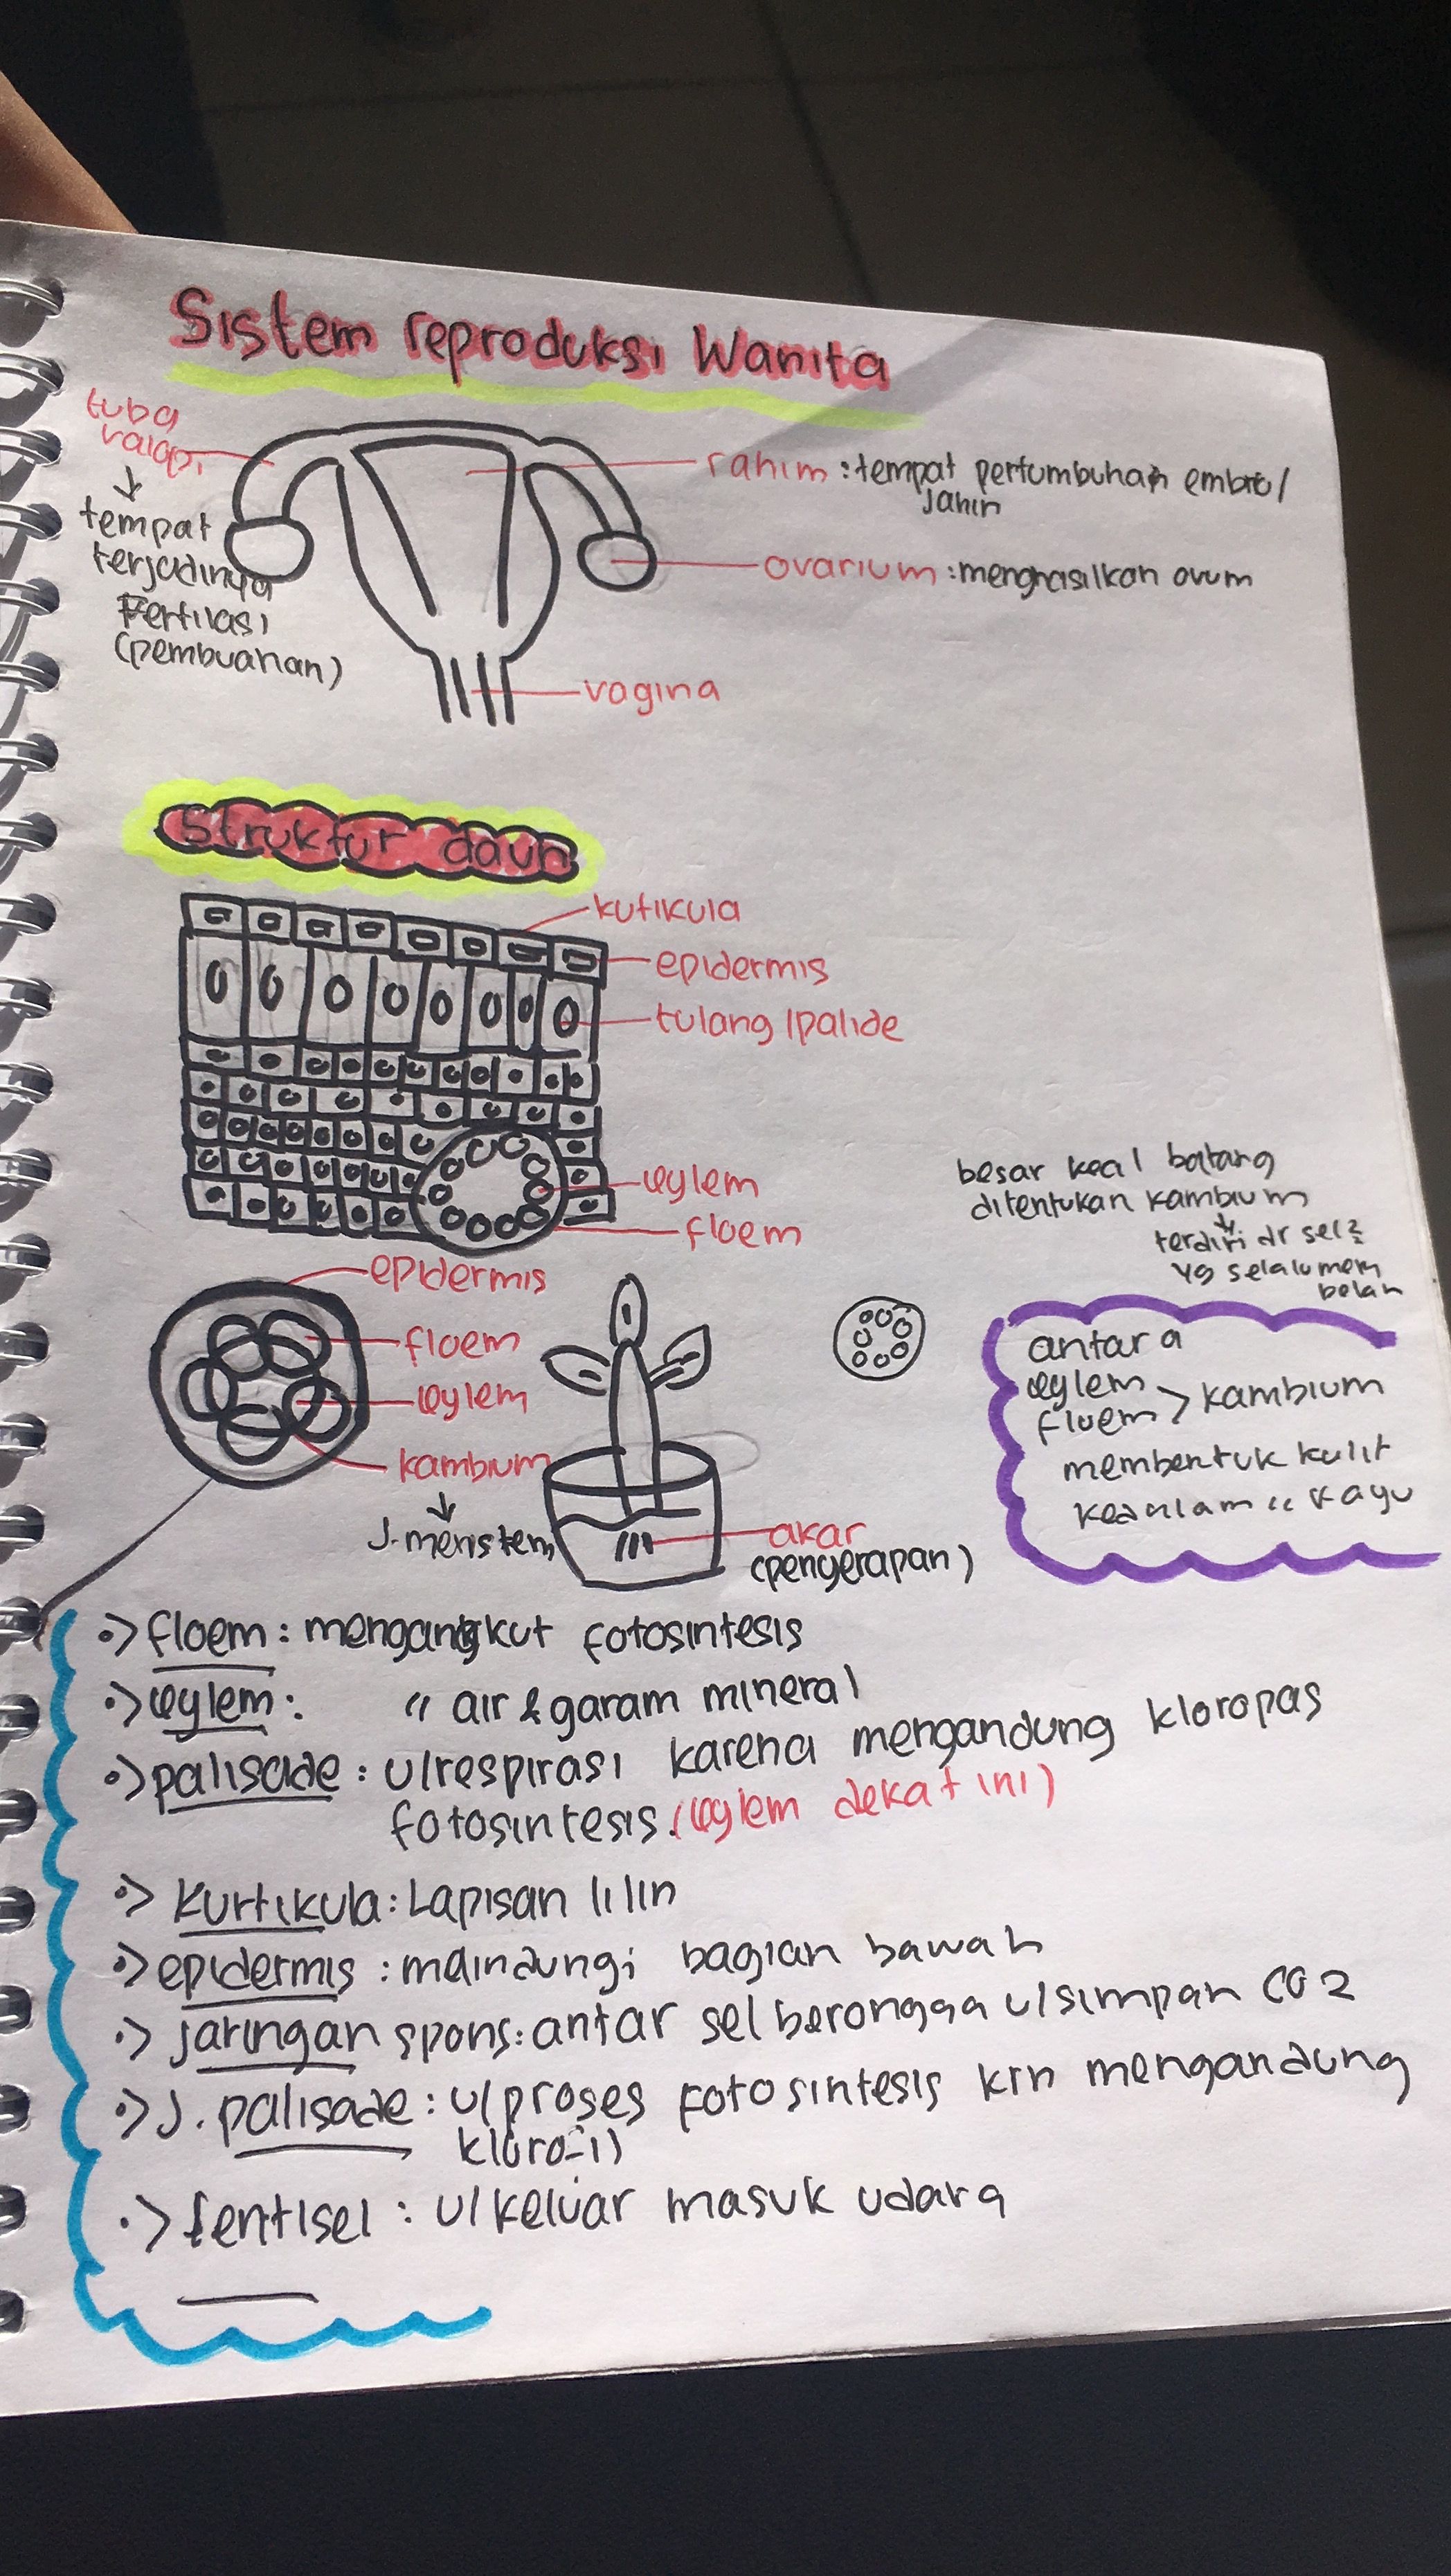 Sistem reproduksi Wanita
tuba
valopi
tempat
terjadinya
Fertilasi
(pembuahan)
rahim : tempat pertumbuhan embrio/
Janin
ovarium : menghasilkan ovum
vagina
Struktur daun
kutikula
epidermis
tulang /palide
xylem
floem
besar kcal batang
ditentukan kambium
terdiri dr sel2
yg selalu mem
belah
epidermis
floem
xylem
kambium
J. meristem
akar
(penyerapan)
antara
xylem
floem > kambium
membentuk kulit
kedalam " kayu
floem : mengangkut fotosintesis
xylem : " air & garam mineral
palisade : u/respirasi karena mengandung kloropas
fotosintesis. (xylem dekat ini)
Kurtikula : Lapisan lilin
epidermis : melindungi bagian bawah
jaringan spons : antar sel berongga u/simpan CO2
J. palisade : u/proses fotosintesis krn mengandung
klorofil
fentisel : u/keluar masuk udara